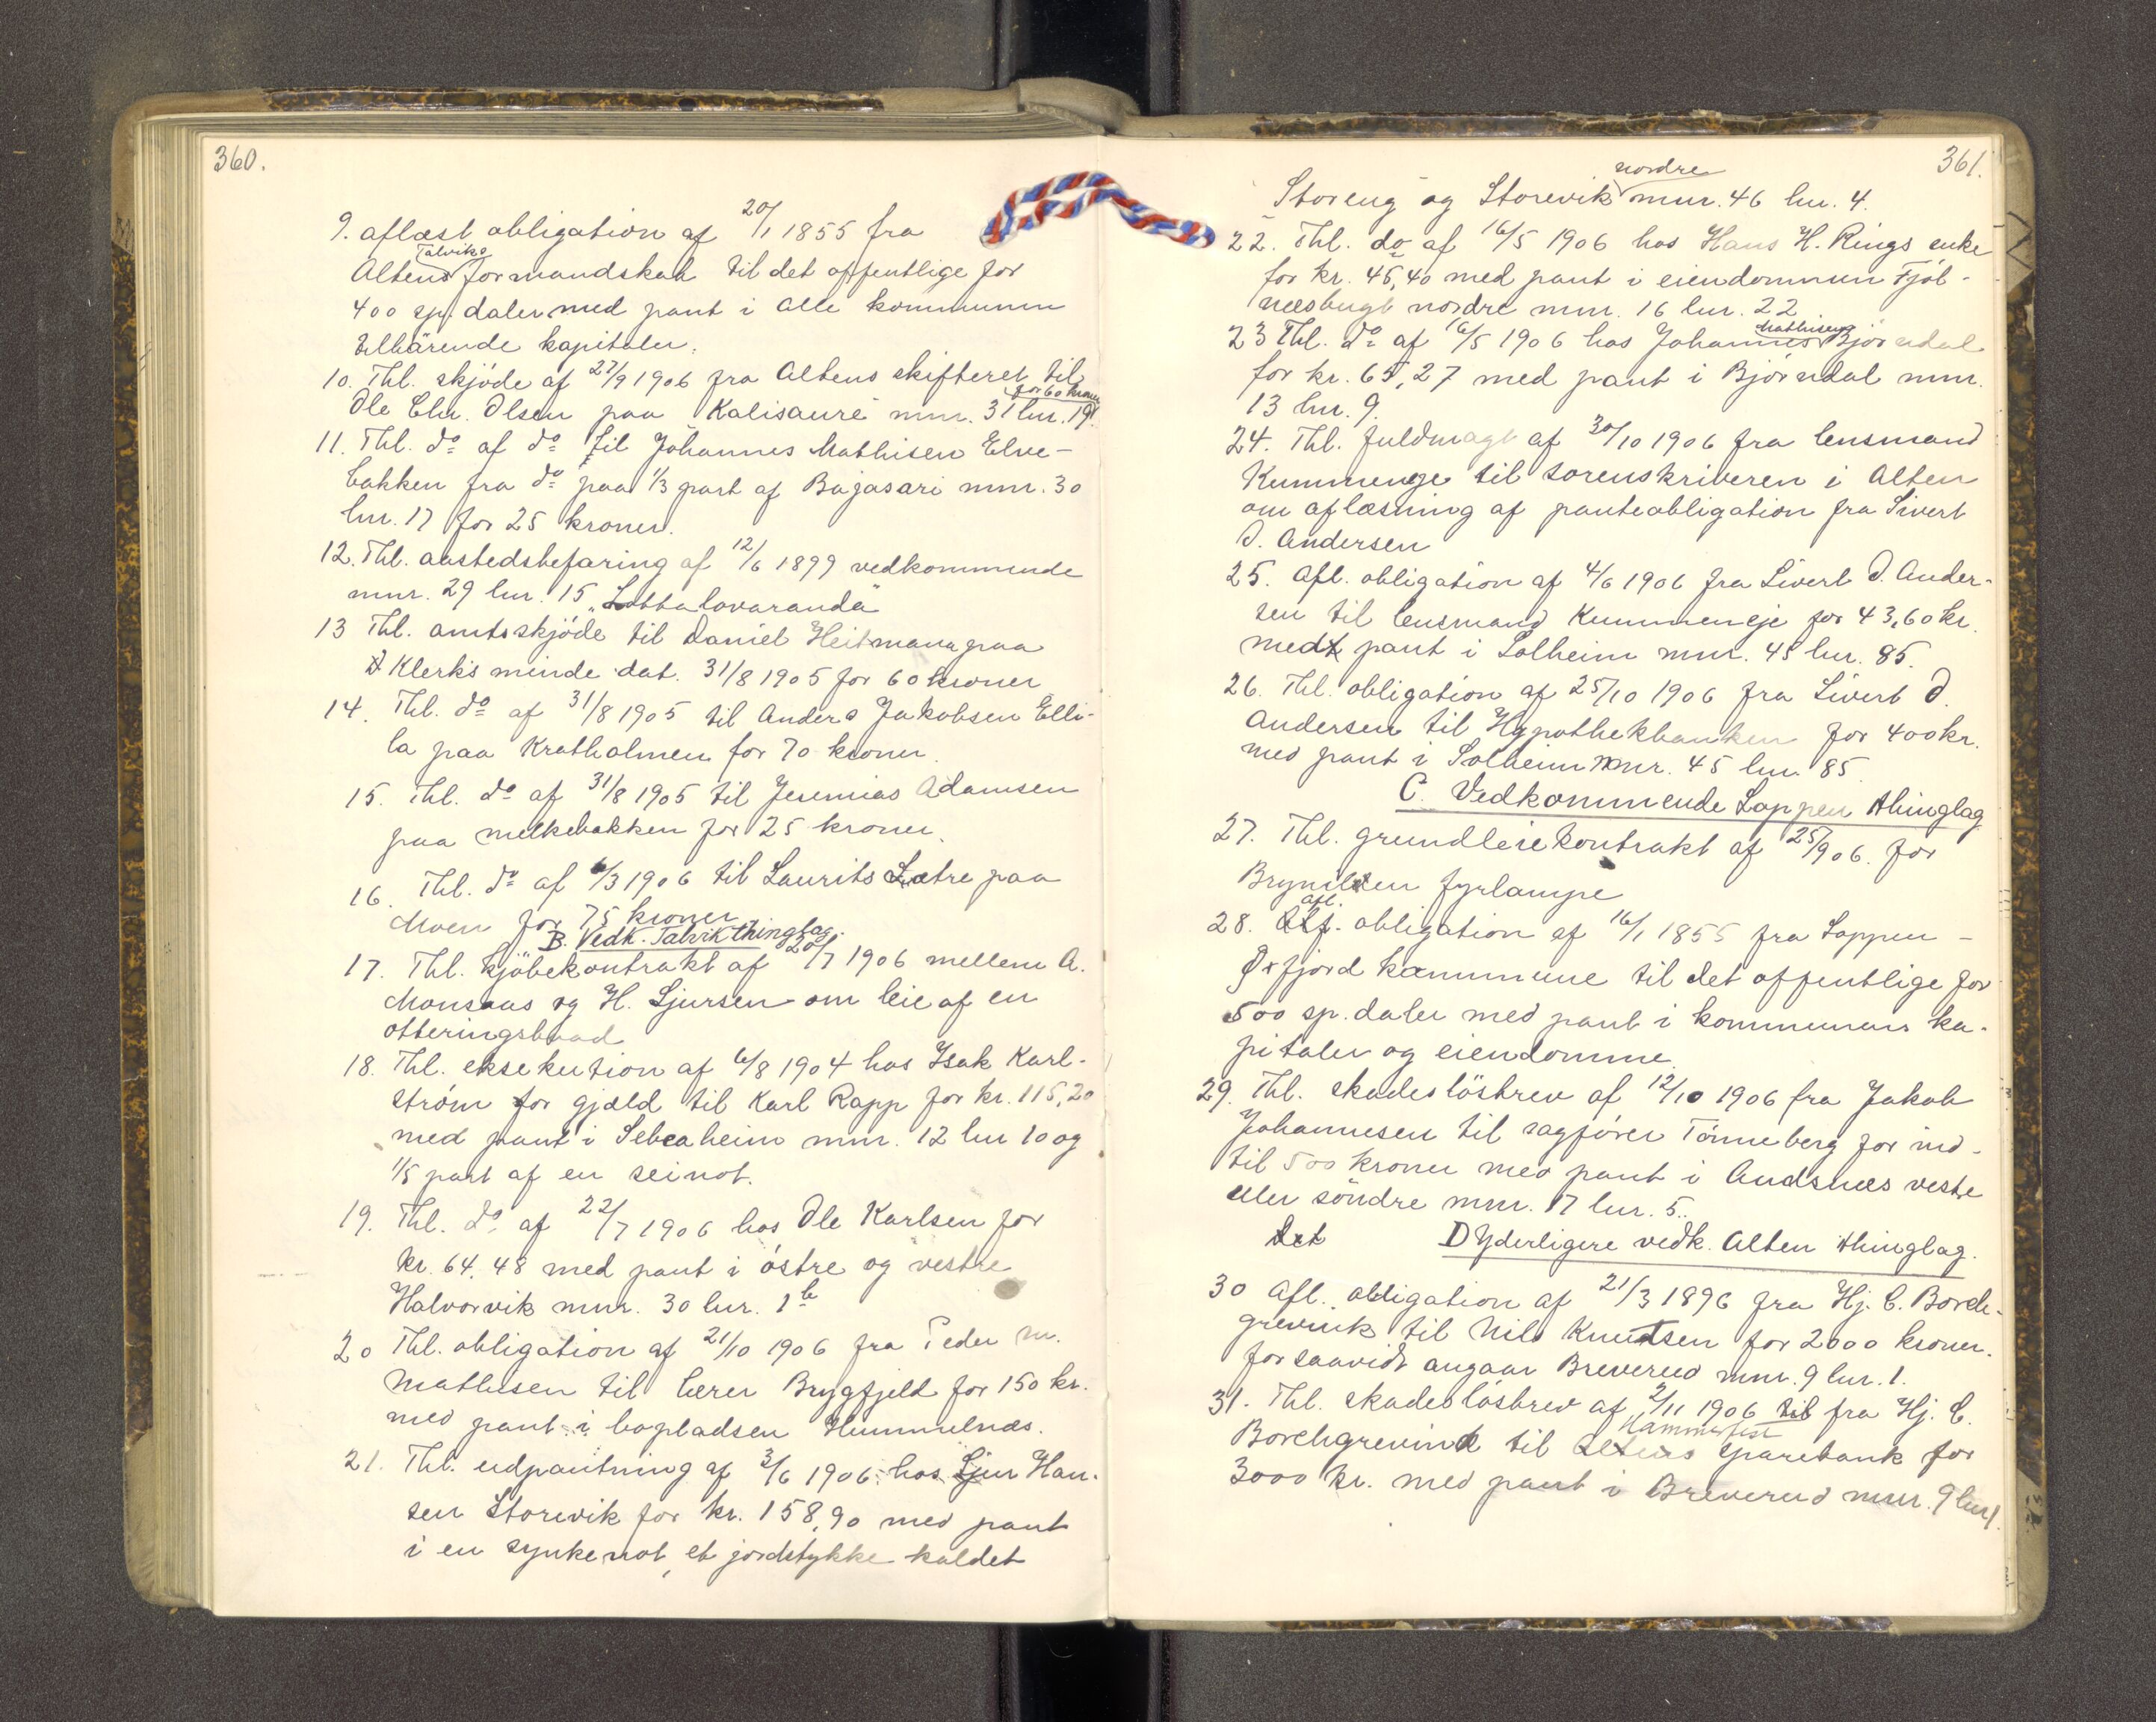 360.
9. aflæst obligation af 20/1 1855 fra
Talviks
Altens formandskab til det offentlige for
400 sp. daler med pant i alle kommunen
tilhørende kapitaler.
10. Thl. skjøde af 27/9 1906 fra Altens skifteret til
for 60 kroner
Ole Chr. Olsen paa Kalisaure mnr. 31 lnr. 19.
11. Thl. do af do til Johannes Mathisen Elve-
bakken fra do paa 1/3 part af Bajasari mnr. 30
lnr. 17 for 25 kroner.
12. Thl. aastedsbefaring af 12/6 1899 vedkommende
mnr. 29 lnr. 15 „Lattalovaranda"
13 Thl. amtsskjøde til Daniel Heitmann paa
Klerks minde dat. 31/8 1905 for 60 kroner
14. Thl. do af 31/8 1905 til Anders Jakobsen Elli-
la paa Kratholmen for 70 kroner.
15. Thl. do af 31/8 1905 til Jeremias Adamsen
paa melkebakken for 25 kroner.
16. Thl. do af 6/3 1906 til Laurits Lætre paa
Moen for 75 kroner
B. Vedk. Talvik thinglag.
17. Thl. kjøbekontrakt af 20/7 1906 mellem A.
Monsaas og H. Sjursen om leie af en
otteringsbaad
18. Thl. eksekution af 6/8 1904 hos Isak Karl-
strøm for gjæld til Karl Rapp for kr. 115,20
med pant i Sebraheim mnr. 12 lnr 10 og
1/5 part af en seinot.
19. Thl. do af 22/7 1906 hos Ole Karlsen for
kr. 64,48 med pant i østre og vestre
Halvorvik mnr. 30 lnr. 1 b
20 Thl. obligation af 21/10 1906 fra Peder M.
Mathisen til lærer Brygfjeld for 150 kr.
med pant i bopladsen Hummelnæs.
21. Thl. udpantning af 3/6 1906 hos Sjur Han-
sen Storevik for kr. 158,90 med pant
i en synkenot, et jordstykke kaldet
361.
nordre
Storeng og Storevik mnr. 46 lnr. 4.
22. Thl. do af 16/5 1906 hos Hans H. Rings enke
for kr. 46,40 med pant i eiendommen Fjøl-
næsbugt nordre mnr. 16 lnr. 22
Mathisen
23 Thl. do af 16/5 1906 hos Johannes Bjørndal
for kr. 65,27 med pant i Bjørndal mnr.
13 lnr. 9.
24. Thl. fuldmagt af 30/10 1906 fra lensmand
Kummeneje til sorenskriveren i Alten
om aflæsning af panteobligation fra Sivert
O. Andersen
25. Afl. obligation af 4/6 1906 fra Sivert O. Ander-
sen til lensmand Kummeneje for 43,60 kr.
med pant i Solheim mnr. 45 lnr. 85.
26. Thl. obligation af 25/10 1906 fra Sivert O.
Andersen til Hypothekbanken for 400 kr.
med pant i Solheim mnr. 45 lnr. 85.
C. Vedkommende Loppen thinglag
27. Thl. grundleiekontrakt af 25/9 06. for
Brynilen fyrlampe
afl.
28. obligation af 16/1 1855 fra Loppen-
Øxfjord kommune til det offentlige for
500 sp. daler med pant i kommunens ka-
pitaler og eiendomme.
29. Thl. skadesløsbrev af 12/10 1906 fra Jakob
Johannesen til sagfører Tønneberg for ind-
til 500 kroner med pant i Andsnes vestre
eller søndre mnr. 17 lnr. 5.
Det D Yderligere vedk. Alten thinglag.
30 Afl. obligation af 21/3 1896 fra Hj. C. Borch-
grevink til Nils Knudtsen for 2000 kroner.
forsaavidt angaar Breverud mnr. 9 lnr. 1.
31. Thl. skadesløsbrev af 2/11 1906 til fra Hj. C.
Hammerfest
Borchgrevink til Altens sparebank for
3000 kr. med pant i Breverud mnr. 9 lnr 1.